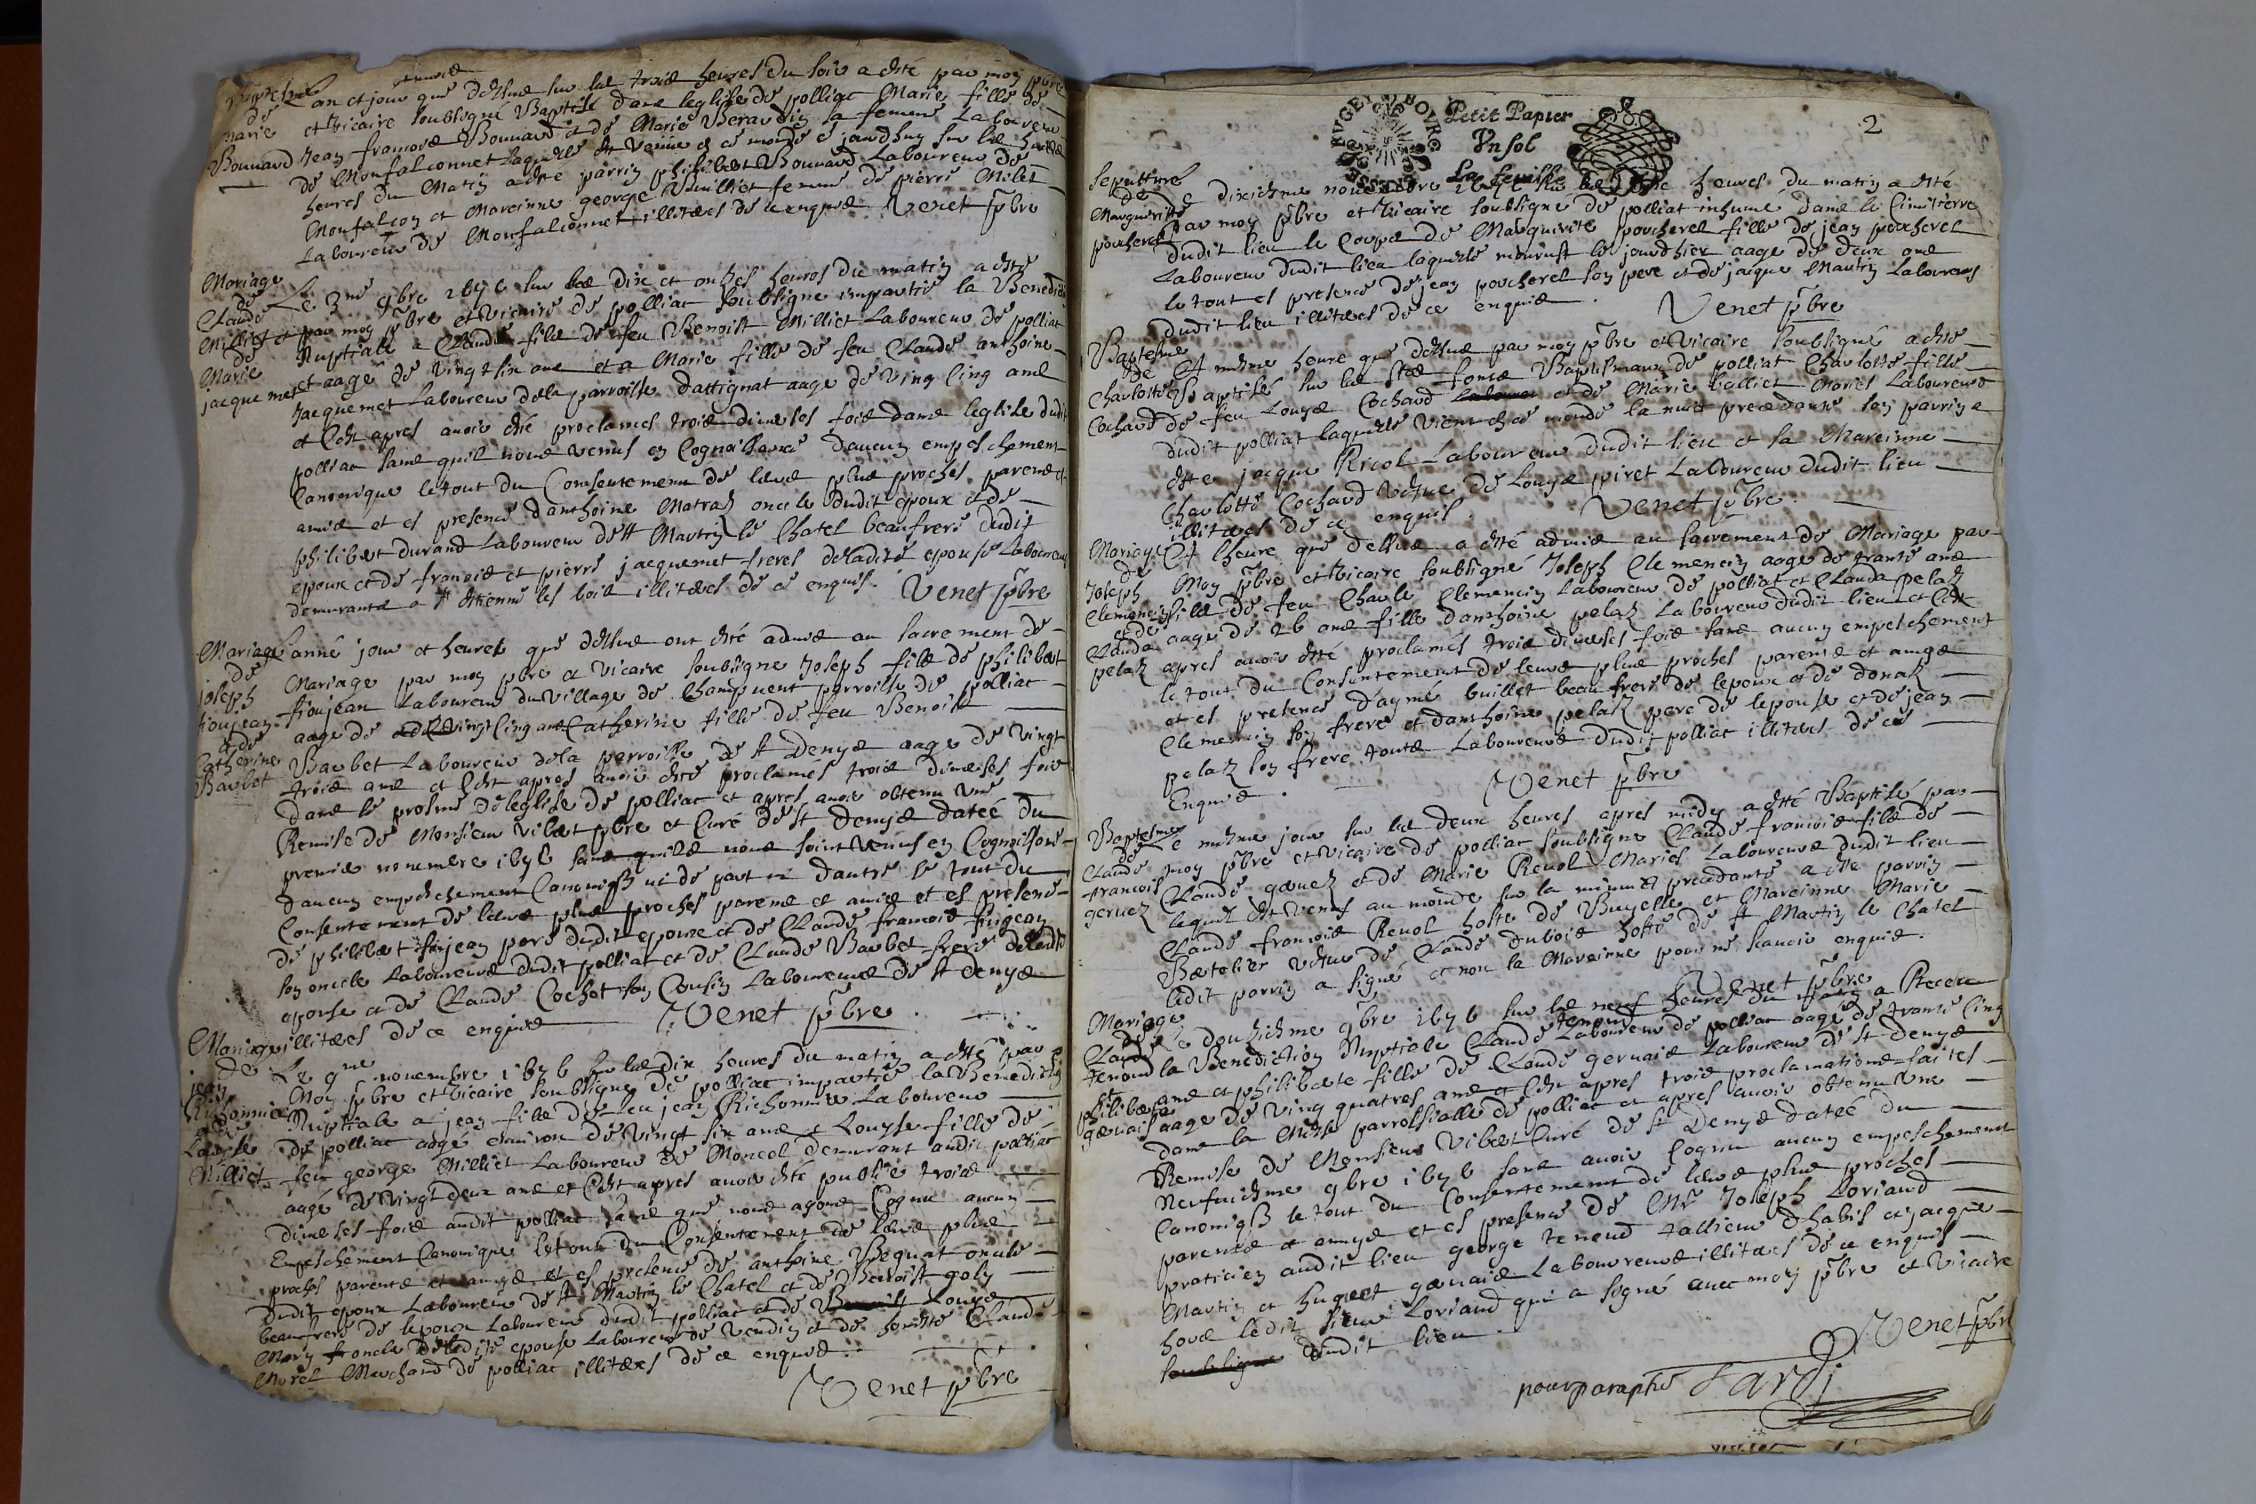 Baptesme
de
Marie
Bouuard
Lan et jour que dessus sur les trois heures du soir a esté par moy pbre
et vicaire soubsigné Baptisé dans leglise de polliac Marie fille de
Jean francois Bouuard et de Marie Beraudin sa femme Laboureur
de Monfalconnet laquelle est venue en ce monde ce jourdhuy sur les huict
heures du Matin a esté parrin philibert Bouuard Laboureur de
Monfalcon et Mareinne george Vuilliet femme de pierre Milet
Laboureur de Monfalconnet illiterés de ce enquis Venet pbre
Mariage
de
Claude
Milliet et
de
Marie
jacquemet
Le 3me 9bre 1676 sur les dix et onzes heures du matin a esté
par moy pbre et vicaire de polliac soubsigne impartie la Benedictio
Nuptiale a Claude fils de feu Benoist Milliet Laboureur de polliat
et aagé de vingt six ans et a Marie fille de feu Claude anthoine
Jacquemet Laboureur dela parroisse dattignat aage de ving cinq ans
et Cest apres auoir esté proclames trois diuerses fois dans leglise dudit
polliac sans quil nous venus en Cognoissance daucun empeschement
Canonique le tout du Consentement de leurs plus proches parens et
amis et en presence danthoine Matraz oncle dudit epoux et de
philibert durand Laboureur de St Martin le Chatel beaufrere dudit
epoux et de francois et pierre jacquemet freres de ladite epouse Laboureurs
demurants a St Estienne les bois illiterés de ce enquis. Venet pbre
Mariage
de
joseph
fioujean
et de
Catherine
Barbet
Lanné jour et heures que dessus ont esté admis au sacrement de
Mariage par moy pbre et vicaire soubsigne Joseph fils de philibert
fioujean Laboureur du village de Champuent parroisse de polliac
aage de vingt cinq ans et Catherine fille de feu Benoist
Barbet Laboureur dela parroisse de St Denys aage de vingt
trois ans et Cest apres auoir esté proclamés trois diuerses fois
dans le prosne de leglise de polliac et apres auoir obtenu une
Remise de Monsieur vibert pbre et Curé de St Denys dateé du
premier nouembre 1676 sans quils nous soint venus en Cognoissance
daucun empeschement Canoniq ni de part ni dautre le tout du
Consentement de leurs plus proches parens et amis et en presence
de philibert fiujean pere dudit epoux et de Claude francois fiugean
son oncle Laboureurs dudit polliac et de Claude Barbet frere de ladite
epouse et de Claude Cochet son Cousin Laboureurs de St Denys
illiterés de ce enquis Venet pbre
Mariage
de
jean
Richonnier
et de
Louyse
Milliet
Le 9me nouembre 1676 sur les dix heures du matin a esté par
Moy pbre et vicaire soubsigne de polliac impartie la Benediction
Nuptiale a jean fils de feu jean Richonnier Laboureur
de polliac aagé enuiron de vingt six ans et Louyse fille de
feu george Milliet Laboureur de Moncel demurant audit polliac
aagé de vingt deux ans et Cest apres auoir esté publié trois
diuerses fois audit polliac sans que nous ayons Cognu aucun
Empeschement Canonique le tout du Consentement de leurs plus
proches parents et amys et en presence de anthoine Bequat oncle
dudit epoux Laboureur de St Martin le Chatel et de Benoist goly
beaufrere de lepoux Laboureur dudit polliac et de Louys
Mory oncle de ladite epouse Laboureur de Vendin et de honeste Claude
Morel Marchand de polliac illiterés de ce enquis.
Venet pbre
Petit Papier
Vn sol
La feuille
2
Sepulture
de
Marguerite
pocherel
Le dixiesme nouembre 1676 sur les heures du matin a esté
par moy pbre et vicaire soubsigne de polliat inhumé dans le Cimitierre
dudit lieu le Corps de Marguerite pocherel fille de jean pocherel
Laboureur dudit lieu laquelle mourust le jourdhier aage de deux ans
le tout en presence de jean pocherel son pere et de jacque Mautin Laboureurs
dudit lieu illiterés de ce enquis. Venet pbre
Baptesme
de
Charlotte
Cochard
A mesme heure que dessus par moy pbre et vicaire soubsigné a esté
Baptisé sur les Sts fonts Baptismaux de polliat Charlotte fille
de feu Louys Cochard et de Marie balliet Mariés Laboureurs
dudit polliat laquelle vient en ce monde la nuict precedante son parrin a
esté jacque Ricol Laboureur dudit lieu et sa Mareinne
Charlotte Cochard vefue de Louys piret Laboureur dudit lieu
illiterés de ce enquis. Venet pbre.
Mariage
de
Joseph
Clemencin
et de
Clauda
pelaz
A lheure que dessus a esté admis au sacrement de Mariage par
Moy pbre et vicaire soubsigné Joseph Clemencin aage de trante ans
fils de feu Charle Clemencin Laboureur de polliat et Clauda pelaz
aage de 26 ans fille danthoine pelaz Laboureur dudit lieu et Cest
apres auoir esté proclamés trois diuerses fois sans aucun empeschement
le tout du Consentement de leurs plus proches parens et amys
et en presence daymé buillet beau frere de lepoux et de donat
Clemencin son frere et danthoine pelaz pere de lepouse et de jean
pelaz son frere touts Laboureurs dudit polliac illiterés de ce
Enquis. Venet pbre
Baptesme
de
Claude
francois
geruez
Le mesme jour sur les deux heures apres midy a esté Baptisé par
moy pbre et vicaire de polliac soubsigne Claude francois fils de
Claude geruez et de Marie Reuol Mariés Laboureurs dudit lieu
lequel est venu au monde sur la minuit precedante a esté parrin
Claude francois Reuol hoste de Buyelle et Mareinne Marie
Bertelier vefue de Claude dubois hoste de St Martin le Chatel
ledit parrin a signé et non la Mareinne pour ne scauoir enquis.
Venet pbre
Mariage
de
Claude
tenoud
et
philiberte
geruais
Le douziesme 9bre 1676 sur les neuf heures du matin a Receu
la Benediction Nuptiale Claude tenoud Laboureur de polliac aagé de trante cinq
ans et philiberte fille de Claude geruais Laboureur de St Denys
aage de ving quatres ans et Cest apres trois proclamations faites
dans la Messe parrossialle de polliac et apres auoir obtenu vne
Remise de Monsieur Vibert Curé de St Denys dateé du
Neufuiesme 9bre 1676 sans auoir Cognu aucun empeschement
Canoniq le tout du Consentement de leurs plus proches
parents et amys et en presence de Mr Joseph Loriaud
praticien audit lieu george tenoud tallieur dhabis et jacque
Martin et huguet geruais Laboureurs illiterés de ce enquis
hors ledit sieur Loriaud qui a signé auec moy pbre et vicaire
dudit lieu.
Venet pbre
pour paraphe Tardi